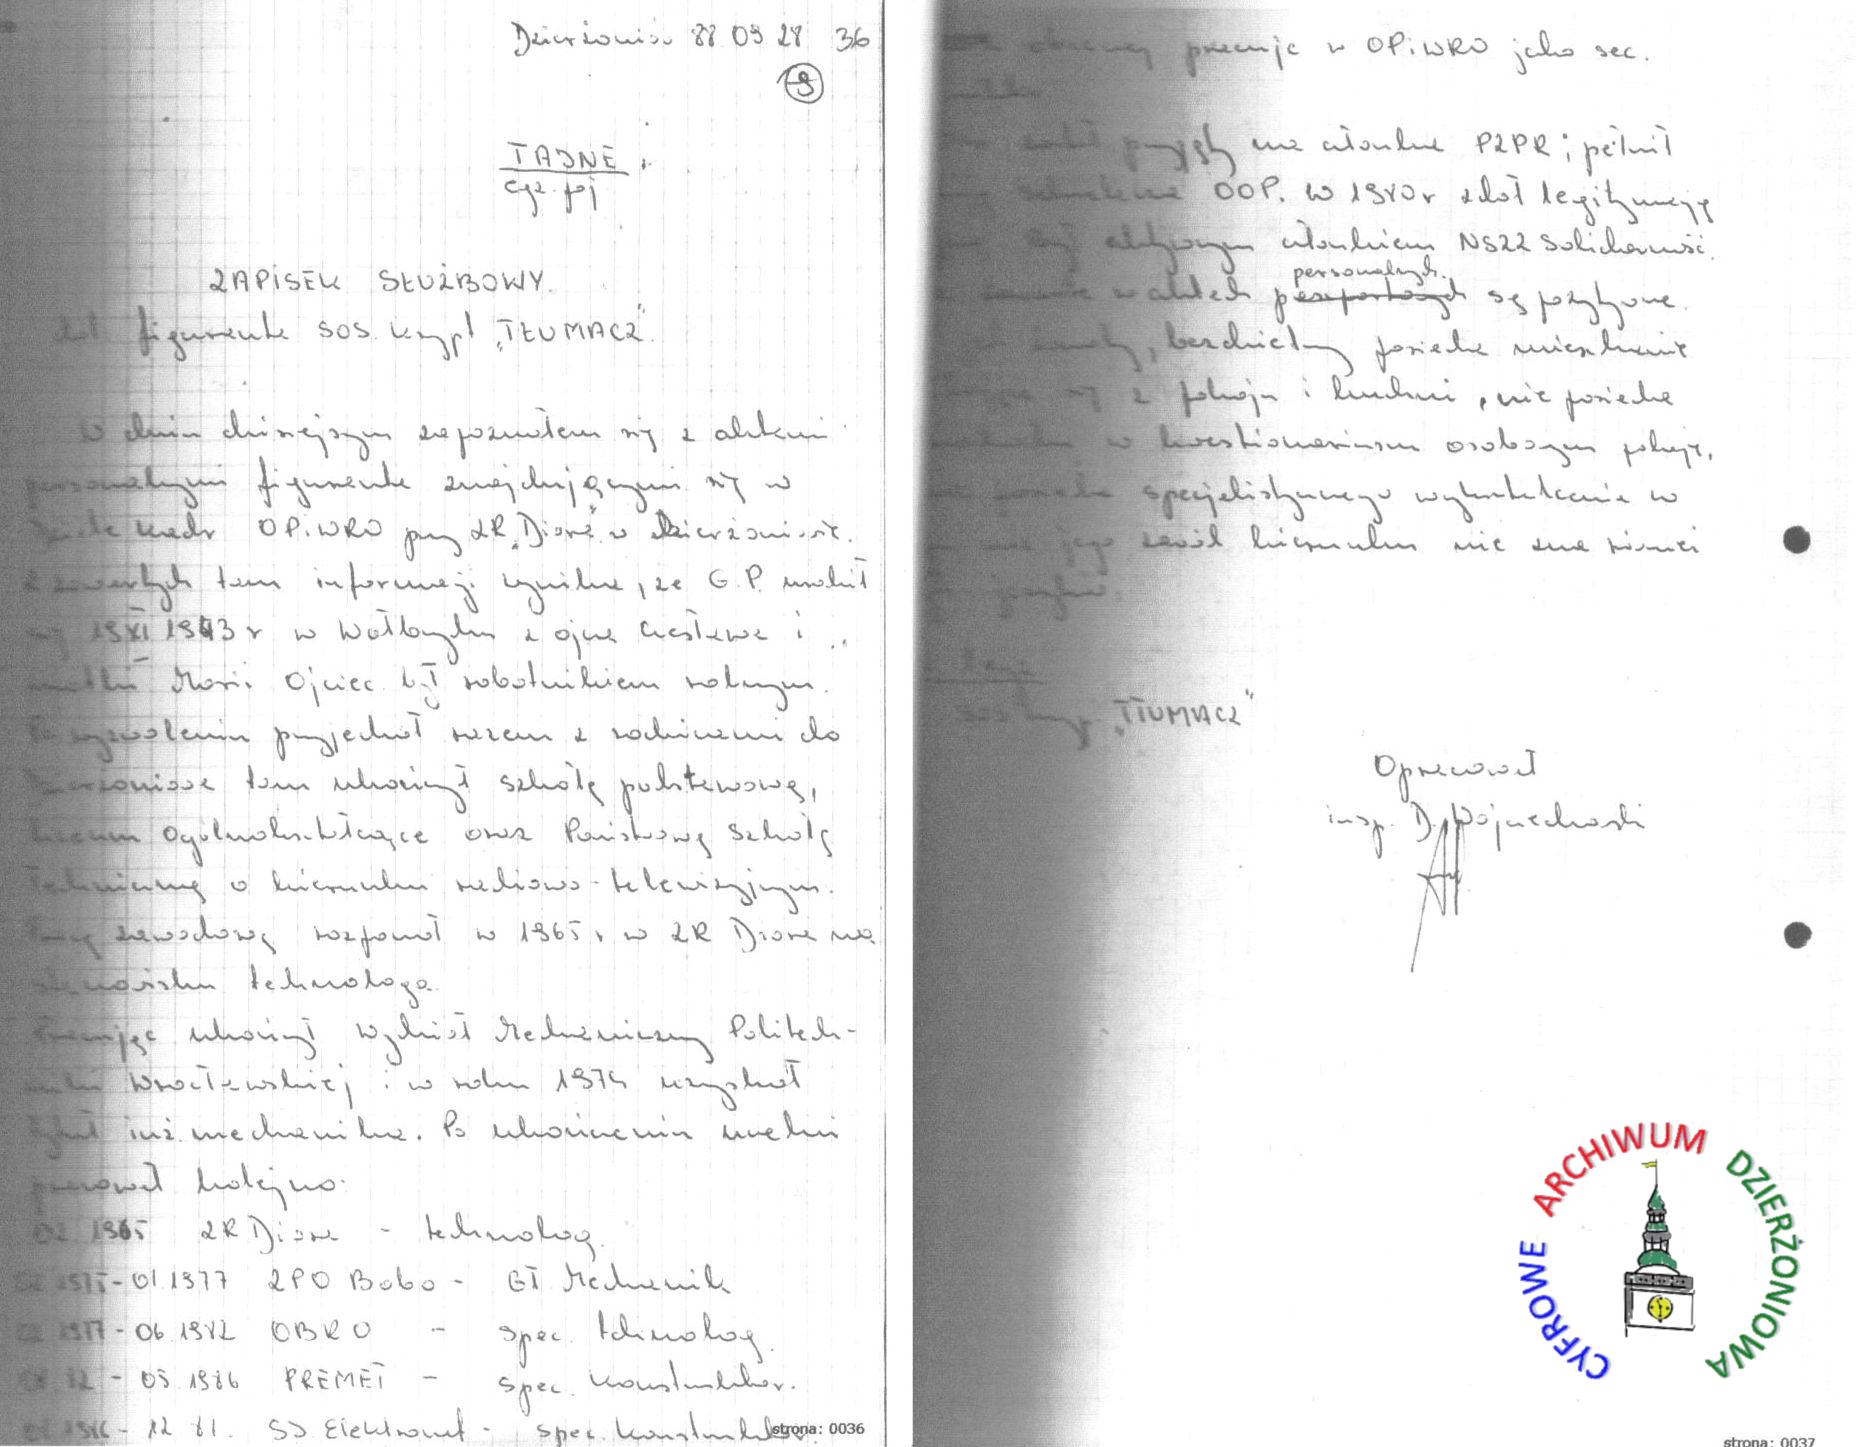 Dzierżoniów 88 09 28 36
9
TAJNE
egz. poj
ZAPISEK SŁUŻBOWY.
dot figuranta SOS. krypt „TŁUMACZ".
W dniu dzisiejszym zapoznałem się z aktami
personalnymi figuranta znajdującymi się w
Dziale Kadr OPiWRO przy ZR „Diora" w Dzierżoniowie.
Z zawartych tam informacji wynika, że G.P. urodził
się 19 XI 1943 r w Wałbrzychu z ojca Czesława i
matki Marii Ojciec był robotnikiem rolnym.
Po wyzwoleniu przyjechał razem z rodzicami do
Dzierżoniowa tam ukończył szkołę podstawową,
Liceum Ogólnokształcące oraz Państwową Szkołę
Techniczną o kierunku radiowo-telewizyjnym.
Pracę zawodową rozpoczął w 1965 r w ZR Diora na
stanowisku technologa.
Pracując ukończył Wydział Mechaniczny Politech-
niki Wrocławskiej i w roku 1974 uzyskał
tytuł inż. mechanika. Po ukończeniu uczelni
pracował kolejno:
02 1965 ZR Diora - technolog.
02 1975 - 01.1977 ZPO Bobo - Gł Mechanik
02 1977 - 06 1982 OBRO - spec. technolog.
- 05 1986 PREMET - spec. konstruktor.
1986 - 12 81. SJ Elektromet - spec. konstruktor.
strona: 0036
obecnej pracuje w OPiWRO jako sec.
został przyjęty na członka PZPR; pełnił
sekretarza OOP. W 1980 r zdał legitymację
był aktywnym członkiem NSZZ Solidarność.
personalnych.
w aktach paszportowych są pozytywne.
bezdzietny posiada mieszkanie
się z pokoju i kuchni, nie posiada
w kwestionariuszu osobowym podaje,
posiada specjalistycznego wykształcenia w
jego zawód kierunku nie zna również
języków.
SOS kryp. „TŁUMACZ"
Opracował
insp. D. Wojciechowski
CYFROWE ARCHIWUM DZIERŻONIOWA
strona: 0037